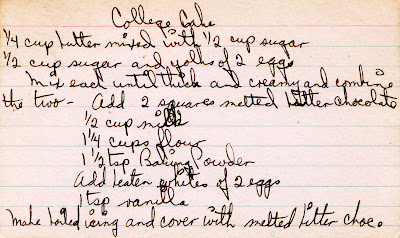 College Cake
1/4 cup butter mixed with 1/2 cup sugar
1/2 cup sugar and yolks of 2 eggs
Mix each until thick and creamy and combine
the two - Add 2 squares melted bitter chocolate
1/2 cup milk
1 1/4 cups flour
1 1/2 tsp Baking Powder
Add beaten whites of 2 eggs
1 tsp vanilla
Make boiled icing and cover with melted bitter choc.